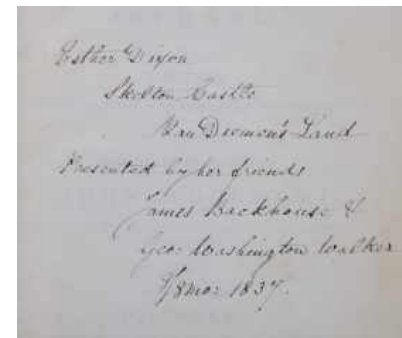 Esther Dixon
Skelton Castle
Van Diemen's Land
Presented by her friends
James Backhouse &
Geo: Washington Walker
8mo: 1837.